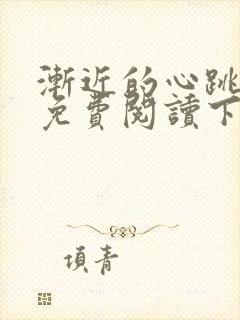 漸近的心跳
免費閱讀下
項青